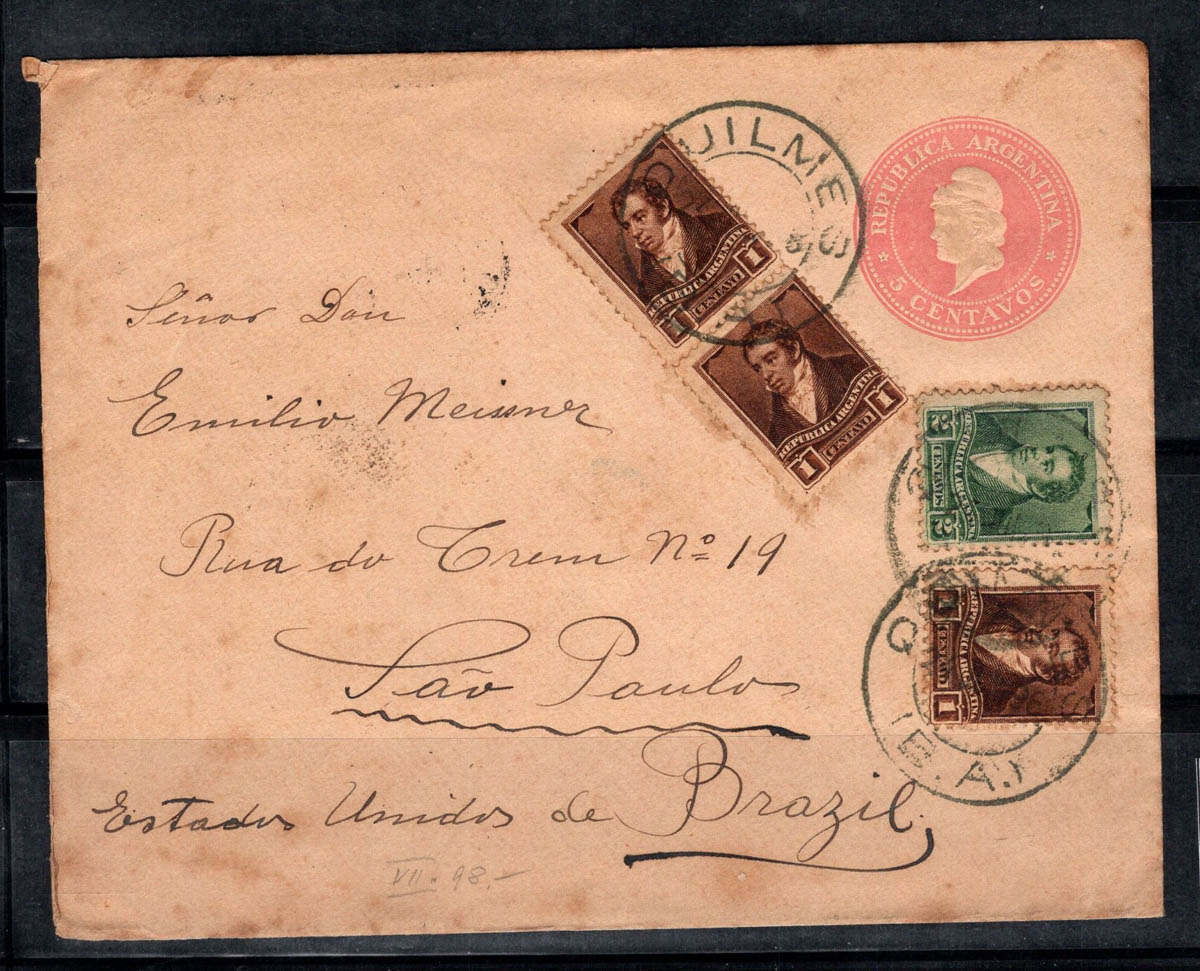 REPUBLICA ARGENTINA
5 CENTAVOS
QUILMES
REPUBLICA ARGENTINA
1 CENTAVO 1
REPUBLICA ARGENTINA
1 CENTAVO 1
REPUBLICA ARGENTINA
2 CENTAVOS 2
REPUBLICA ARGENTINA
1 CENTAVO 1
(B.A.)
Señor Don
Emilio Meissner
Rua do Trem Nº 19
São Paulo
Estados Unidos de Brazil.
VII. 98.-